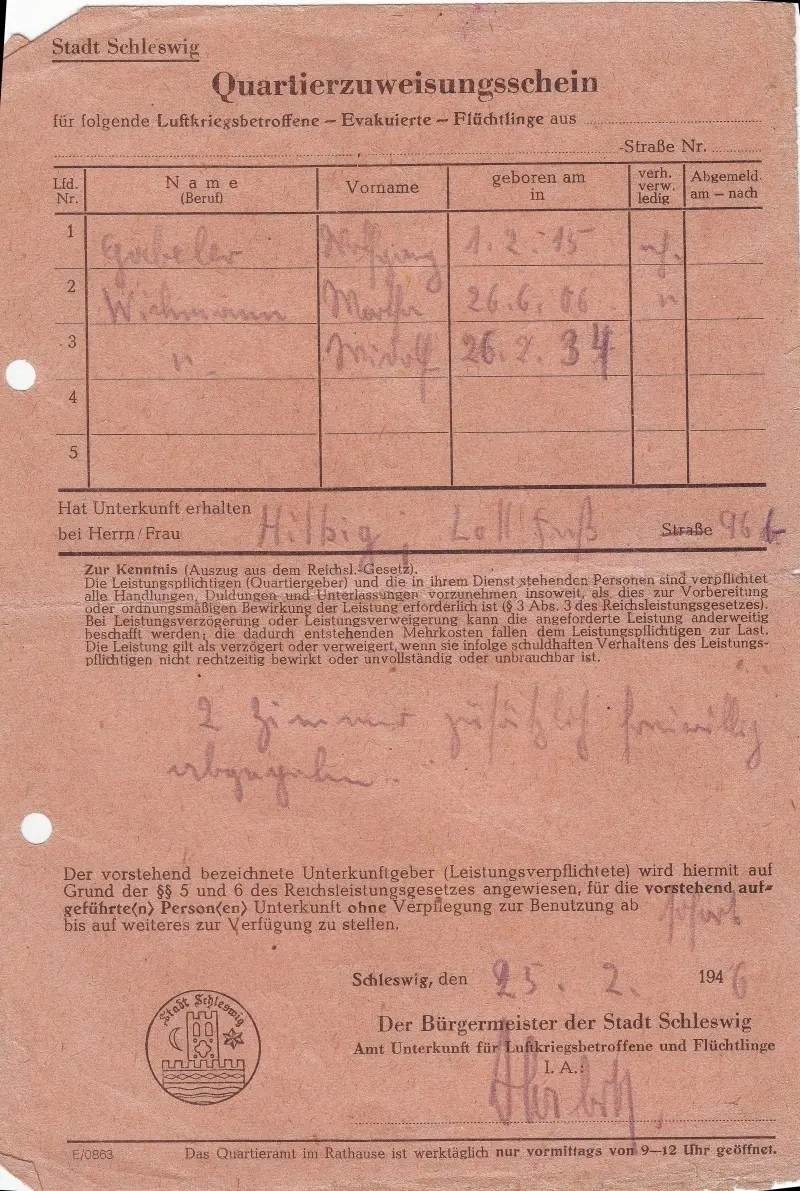 Stadt Schleswig
Quartierzuweisungsschein
für folgende Luftkriegsbetroffene – Evakuierte – Flüchtlinge aus
-Straße Nr.
Lfd. Nr. Name (Beruf) Vorname geboren am in verh. verw. ledig Abgemeld. am – nach
1 Gabeler Wolfgang 1. 2. 15
2 Wichmann Martha 26. 6. 06 "
3 " 26. 2. 34
4
5
Hat Unterkunft erhalten
bei Herrn/Frau Hilbig, Lollfuß Straße 96 b
Zur Kenntnis (Auszug aus dem Reichsl.-Gesetz).
Die Leistungspflichtigen (Quartiergeber) und die in ihrem Dienst stehenden Personen sind verpflichtet
alle Handlungen, Duldungen und Unterlassungen vorzunehmen insoweit, als dies zur Vorbereitung
oder ordnungsmäßigen Bewirkung der Leistung erforderlich ist (§ 3 Abs. 3 des Reichsleistungsgesetzes).
Bei Leistungsverzögerung oder Leistungsverweigerung kann die angeforderte Leistung anderweitig
beschafft werden; die dadurch entstehenden Mehrkosten fallen dem Leistungspflichtigen zur Last.
Die Leistung gilt als verzögert oder verweigert, wenn sie infolge schuldhaften Verhaltens des Leistungs-
pflichtigen nicht rechtzeitig bewirkt oder unvollständig oder unbrauchbar ist.
2 Zimmer zusätzlich freiwillig
abgegeben.
Der vorstehend bezeichnete Unterkunftgeber (Leistungsverpflichtete) wird hiermit auf
Grund der §§ 5 und 6 des Reichsleistungsgesetzes angewiesen, für die vorstehend auf-
geführte(n) Person(en) Unterkunft ohne Verpflegung zur Benutzung ab sofort
bis auf weiteres zur Verfügung zu stellen.
Schleswig, den 25. 2. 1946
Stadt Schleswig
Der Bürgermeister der Stadt Schleswig
Amt Unterkunft für Luftkriegsbetroffene und Flüchtlinge
I. A.:
E/0863 Das Quartieramt im Rathause ist werktäglich nur vormittags von 9—12 Uhr geöffnet.